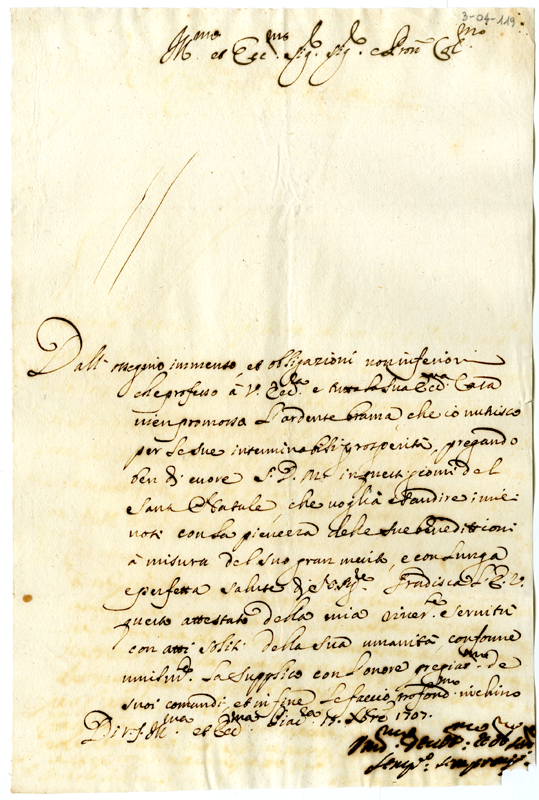 3-04-119
Ill.mo et Ecc.mo Sig. Sig. e Pron. Col.mo
Dall' ossequio immenso, et obligazioni non inferiori
che professo à V. Ecc. e tutta la sua Ecc.ma Casa
vien promossa l'ardente brama, che io nutrisco
per le sue interminabili prosperità, pregando
ben di cuore S. D. M. in questi giorni del
Santo Natale, che voglia esaudire i miei
voti con la pienezza delle sue benedittioni
à misura del suo gran merito, e con lunga
e perfetta salute Gradisca V. E.
questo attestato della mia river. e servitù
con atti soliti della sua umanità, conforme
umilm. la supplico con l'onore pregiat.mo de
suoi comandi, et in fine le faccio profond.mo inchino
Di V. Ill.ma et Ecc.ma 18 Xbre 1707.